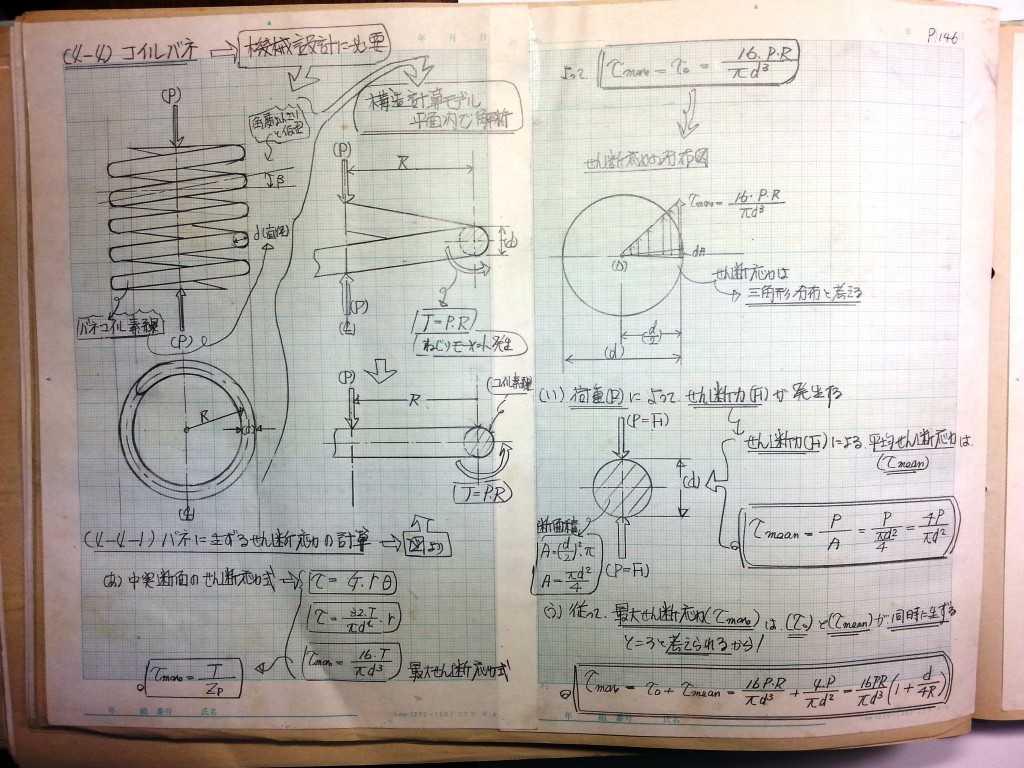 P.146
(4-4) コイルバネ → 機械設計に必要
年 月 日
構造計算モデル
平面内で解析
(P)
β
d(直径)
バネコイル素線
(P)
R
(P)
R
(d)
(P)
T=P.R
ねじりモーメント発生
(P)
R
(コイル素線)
T=P.R
R
(4-4-1) バネに生ずるせん断応力の計算 → 図より
(あ) 中実断面のせん断応力式 → τ = G.rθ
τ = 32.T/πd⁴ . r
τmax = T/Zp ← τmax = 16.T/πd³ 最大せん断応力式
年 組 番号 氏名
よって τmax = τ₀ = 16.P.R/πd³
せん断応力分布図
τmax = 16.P.R/πd³
dA
(O)
せん断応力は
三角形分布と考える
(d/2)
(d)
(い) 荷重(P)によって、せん断力(F)が発生する
(P=F)
せん断力(F)による、平均せん断応力は、
(τmean)
(d)
断面積
A=(d/2)².π
A=πd²/4
(P=F)
τmean = P/A = P/(πd²/4) = 4P/πd²
(う) 従って、最大せん断応力(τmax)は、(τ₀)と(τmean)が、同時に生ずる
ところと考えられるから
τmax = τ₀ + τmean = 16P.R/πd³ + 4.P/πd² = 16PR/πd³ (1 + d/4R)
年 組 番号 氏名